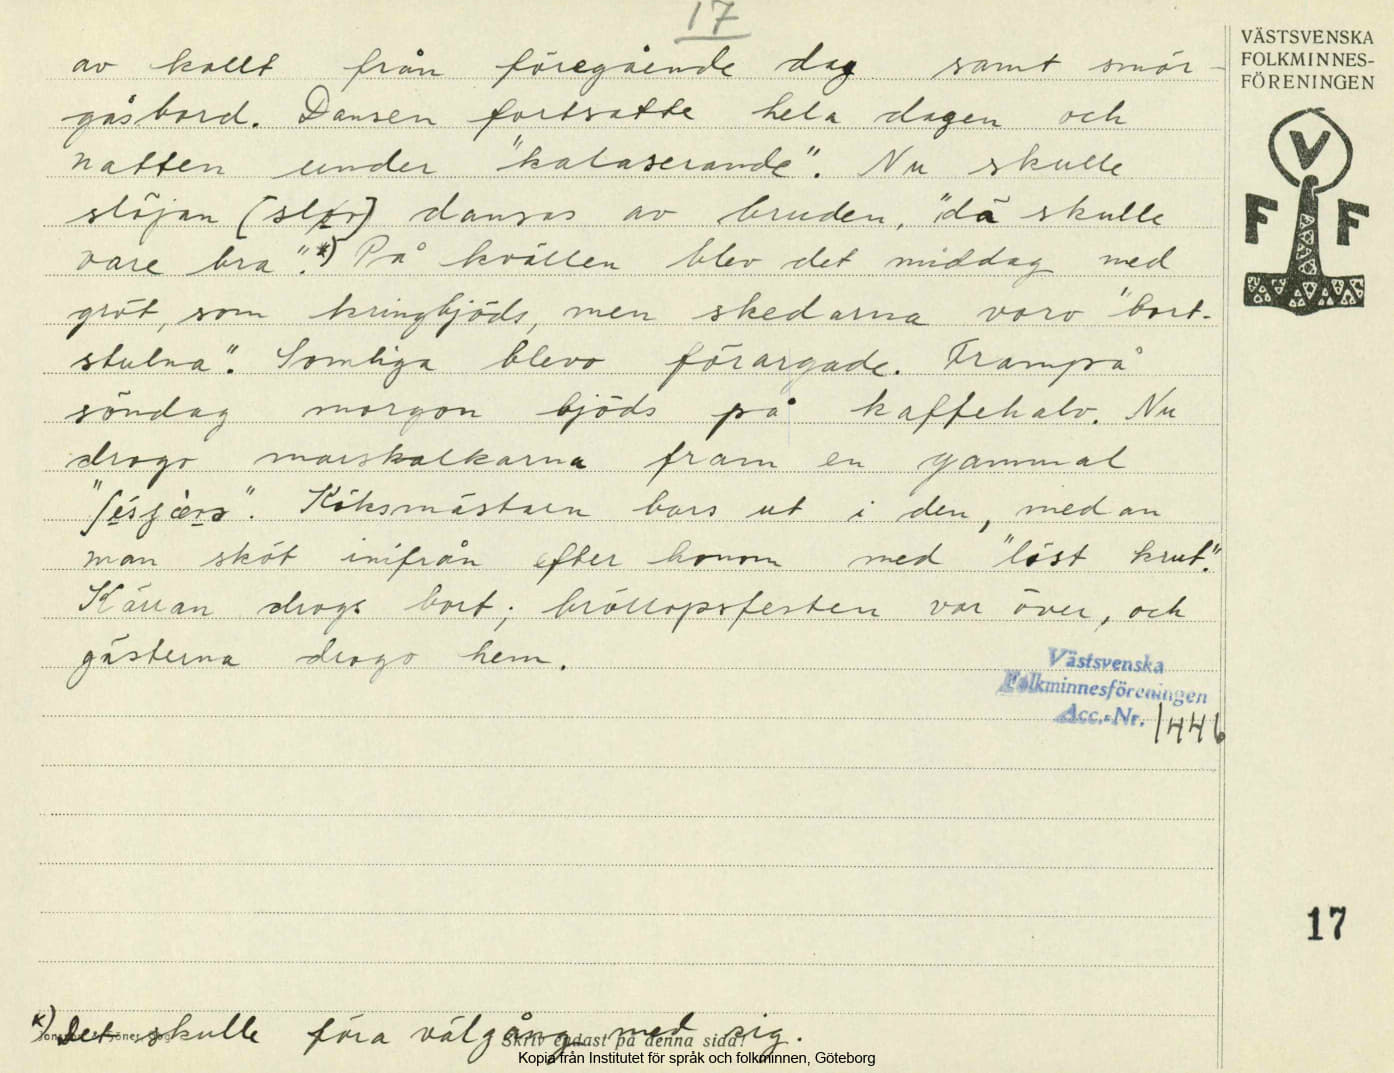 17
VÄSTSVENSKA
FOLKMINNES-
FÖRENINGEN
V
F F
av kallt från föregående dag samt smör-
gåsbord. Dansen fortsatte hela dagen och
natten under "kalaserande". Nu skulle
slöjan [slør] dansas av bruden, "dä skulle
vare bra".*) På kvällen blev det middag med
gröt, som kringbjöds, men skedarna voro "bort-
stulna". Somliga blevo förargade. Frampå
söndag morgon bjöds på kaffehalv. Nu
drogo marskalkarna fram en gammal
Köksmästarn bars ut i den, medan
man sköt inifrån efter honom med "löst krut".
Kärran drogs bort; bröllopsfesten var över, och
gästerna drogo hem.
Västsvenska
Folkminnesföreningen
Acc.-Nr. 1446
17
*) Det skulle föra välgång med sig.
Skriv endast på denna sida!
Kopia från Institutet för språk och folkminnen, Göteborg